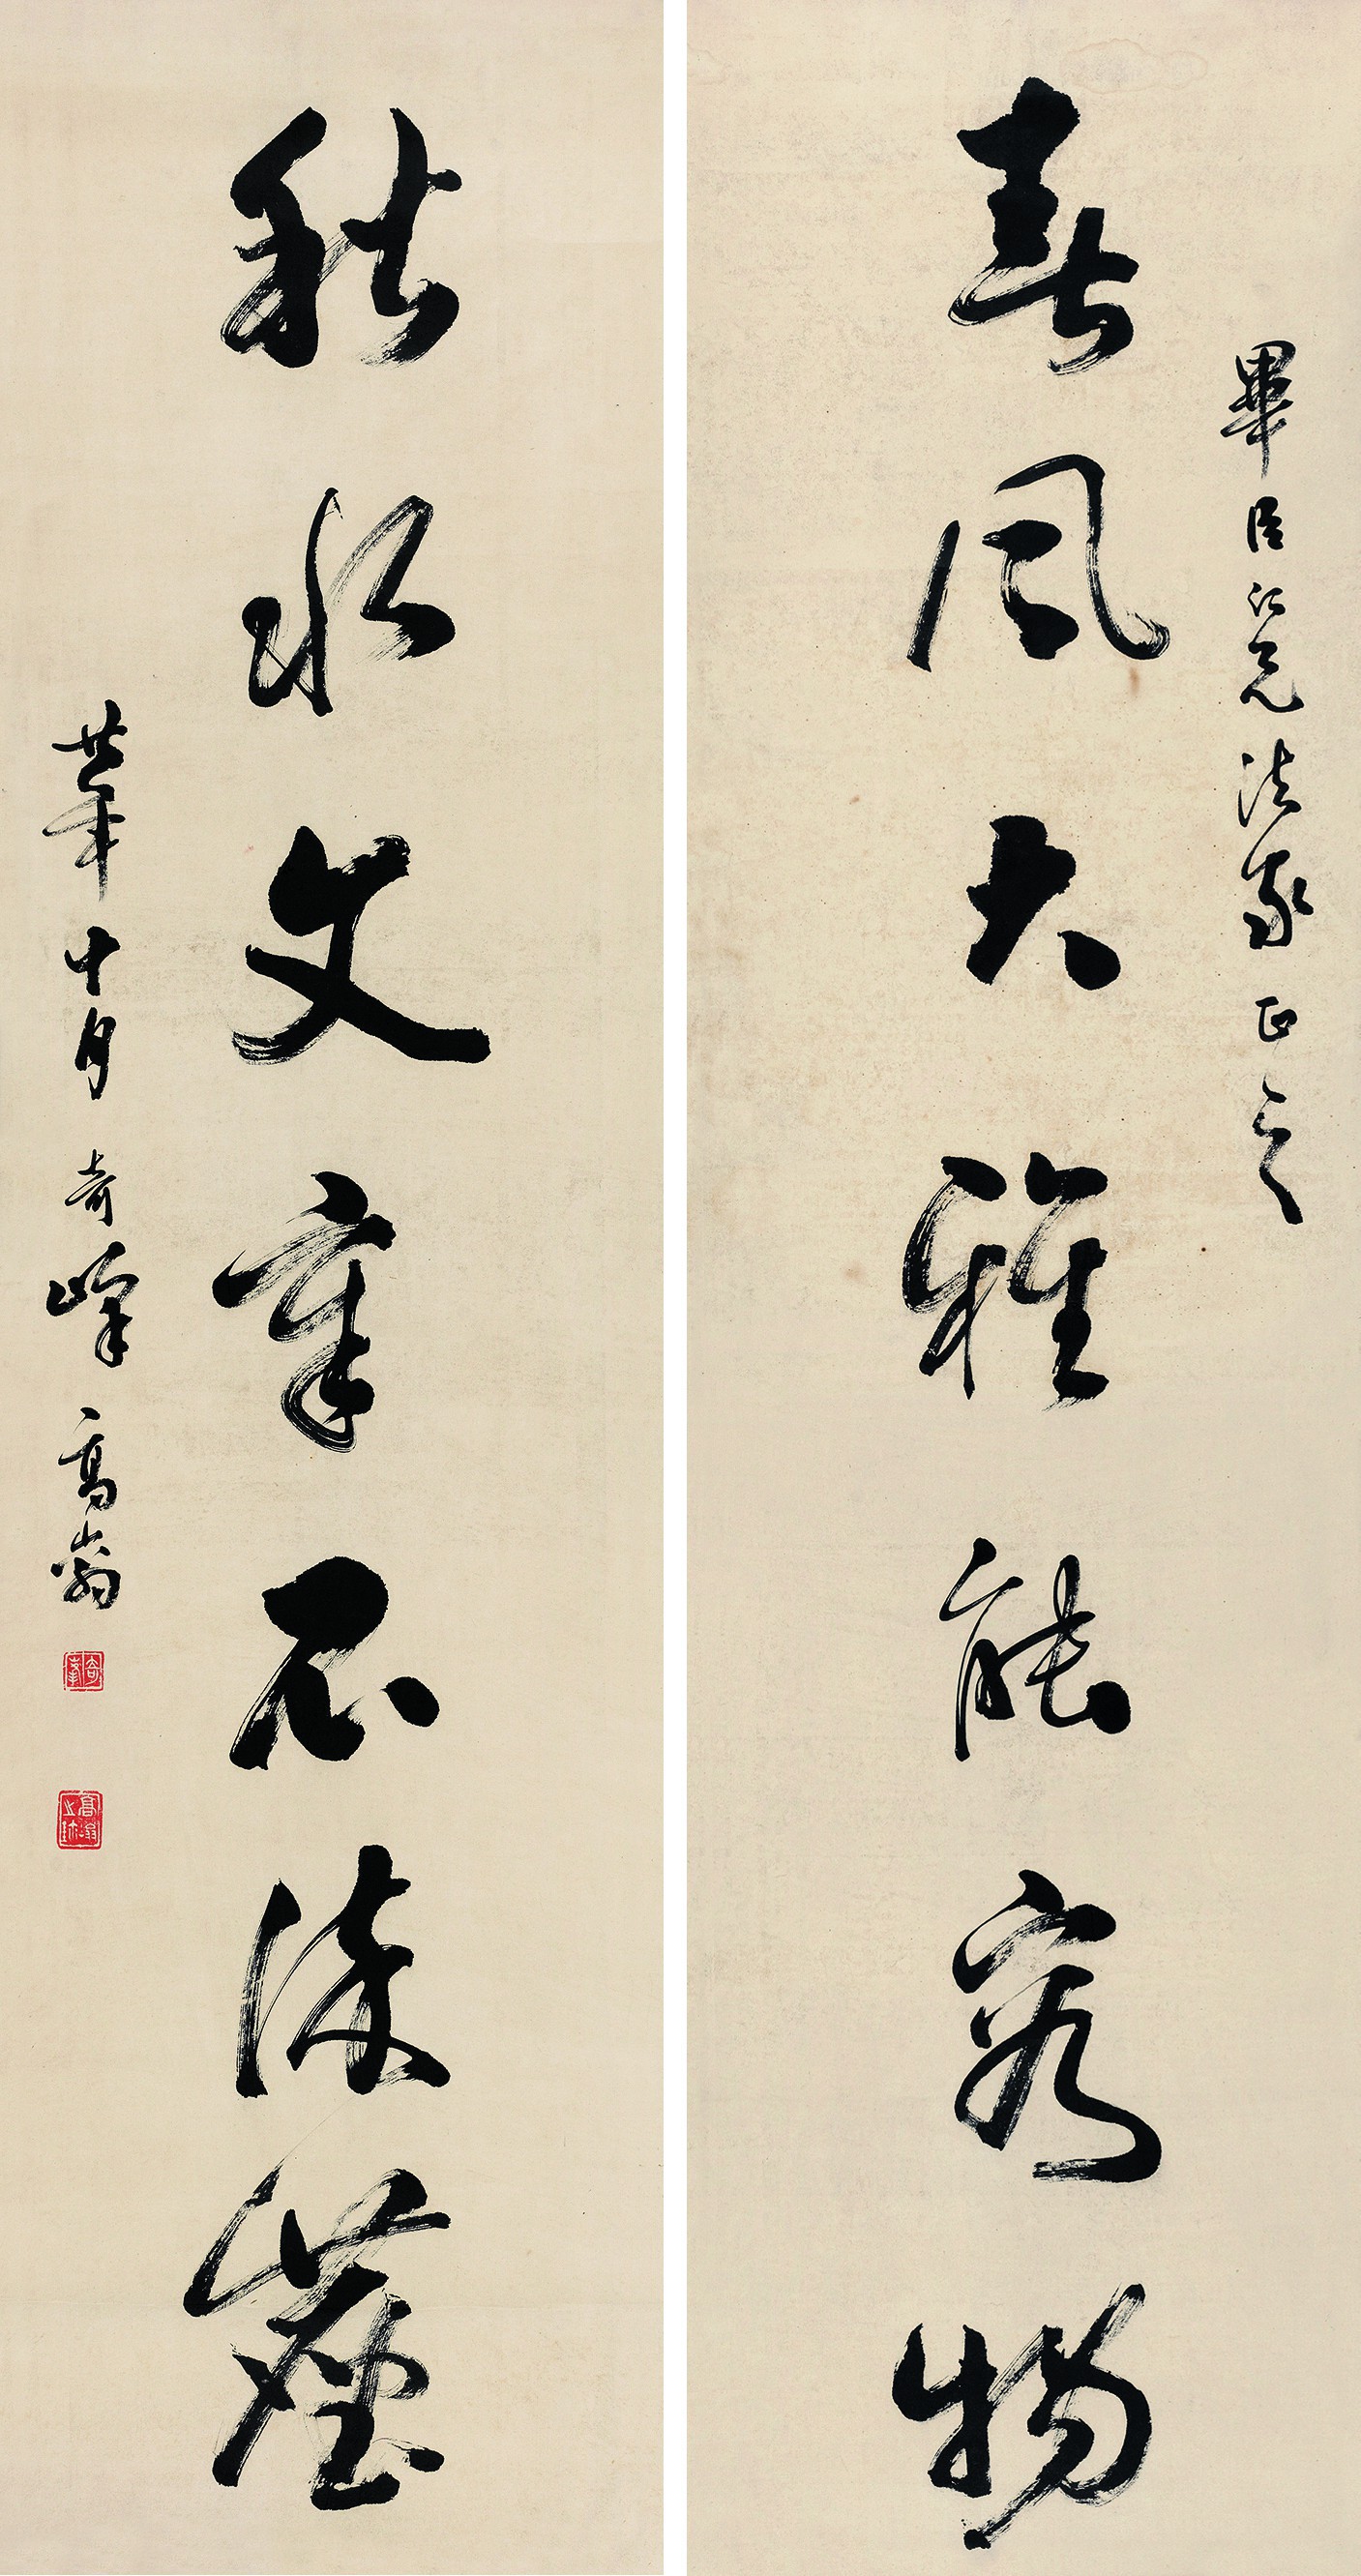 畢臣仁兄法家正之
春風大雅能容物
秋水文章不染塵
廿年十月奇峰高嵡
奇峯